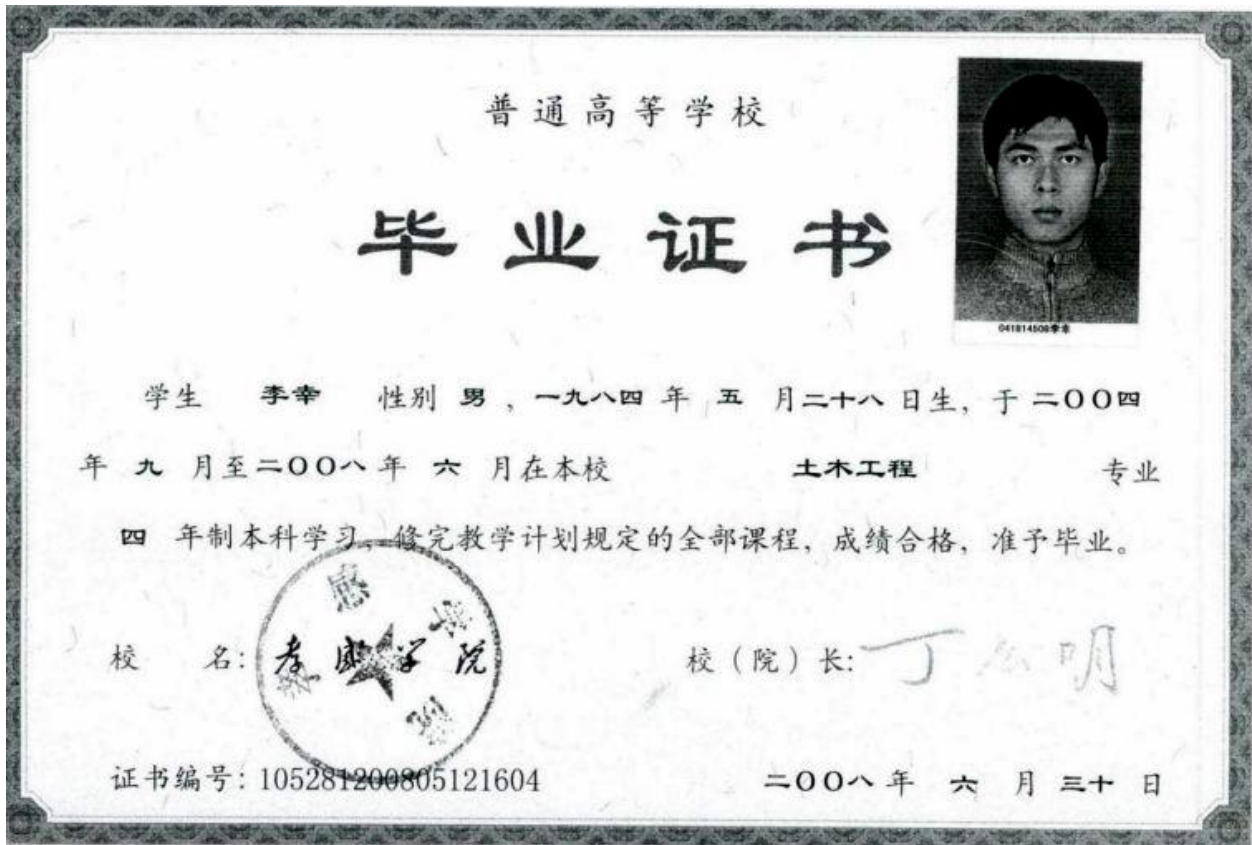 普通高等学校
毕业证书
041814508李幸
学生 李幸 性别 男，一九八四 年 五 月二十八 日生，于 二〇〇四
年 九 月至二〇〇八 年 六 月在本校 土木工程 专业
四 年制本科学习，修完教学计划规定的全部课程，成绩合格，准予毕业。
校 名：孝感学院 校（院）长：丁么明
孝感学院
证书编号：105281200805121604 二〇〇八 年 六 月 三十 日